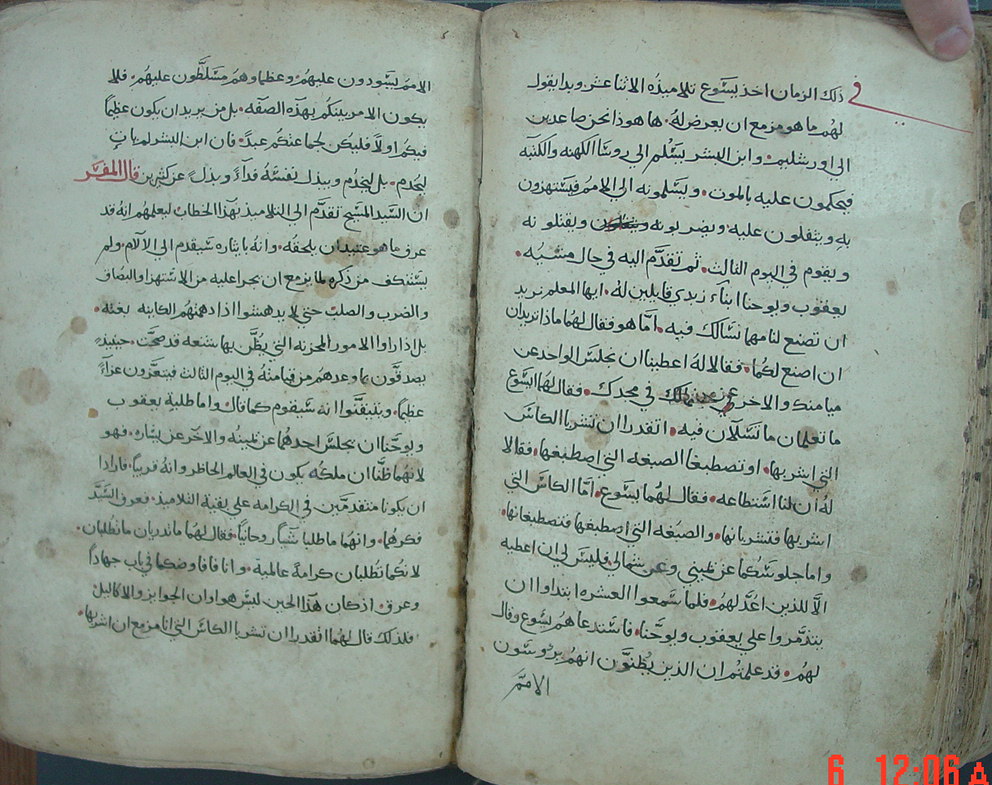 في ذلك الزمان اخذ يسوع تلاميذه الاثنا عشر وبدا يقول
لهم ما هو مزمع ان يعرض له. ها هوذا نحن صاعدين
الى اورشليم. وابن البشر يسلم الى روسا الكهنه والكتبه
فيحكمون عليه بالموت. ويسلمونه الى الامم فيستهزون
به ويتفلون عليه. ويضربونه ويقتلونه
ويقوم في اليوم الثالث. ثم تقدم اليه في حال مشيه.
يعقوب ويوحنا ابناء زبدي قايلين له. ايها المعلم نريد
ان تصنع لنا مهما نسالك فيه. اما هو فقال لهما ماذا تريدان
ان اصنع لكما. فقالا له اعطينا ان نجلس الواحد عن
ميامنك والاخر عن في مجدك. فقال لهما يسوع
ما تعلمان ما تسلان فيه. اتقدرا ان تشربا الكاس
التي اشربها. او تصطبغا الصبغه التي اصطبغها. فقالا
له ان لنا اشتطاعه. فقال لهما يسوع. اما الكاس التي
اشربها فتشربانها. والصبغه التي اصطبغها فتصطبغانها.
واما جلوسكما عن يميني وعن شمالي فليس لي ان اعطيه
الا للذين اعد لهم. فلما سمعوا العشره ابتداوا ان
يتذمروا على يعقوب ويوحنا. فاستدعاهم يسوع وقال
لهم. قد علمتم ان الذين يظنون انهم يروسون
الامم
الامم يسودون عليهم. وعظماوهم مسلطون عليهم. فلا
يكون الامر بينكم بهذه الصفه. بل من يريد ان يكون عظيما
فيكم اولا فليكن لجماعتكم عبدا. فان ابن البشر لم يات
ليخدم. بل ليخدم ويبذل نفسه فداء وبدل عن كثيرين قال المفسر
ان السيد المسيح تقدم الى التلاميذ بهذا الخطاب ليعلمهم انه قد
عرف ما هو عتيد ان يلحقه. وانه بايثاره سيقدم الى الالام. ولم
يستنكف من ذكره لما يزمع ان يجرا عليه من الاستهزا والبصاف
والضرب والصلب حتى لا يدهشوا اذا دهمتهم الكاينه بغته.
بل اذا راوا الامور المحزنه التي يظن بها شنعه قد صحت. حينيذ
يصدقون بما وعدهم من قيامته في اليوم الثالث فيتعزون عزاء
عظيما. ويتيقنوا انه سيقوم كما قال. واما طلبة يعقوب
ويوحنا ان يجلس احدهما عن يمينه والاخر عن يساره. فهو
لانهما ظنا ان ملكه يكون في العالم الحاظر وانه قريبا. فارادا
ان يكونا متقدمين في الكرامه على بقية التلاميذ. فعرف السيد
فكرهما. وانهما ما طلبا شيا روحانيا. فقال لهما ما تدريان ما تطلبان.
لانكما تطلبان كرامة عالمية. وانا فاوضكما في باب جهادا
وعرق. اذ كان هذا الحين ليس هو اوان الجوايز والاكاليل
فلذلك قال لهما اتقدرا ان تشربا الكاس التي انا مزمع ان اشربها.